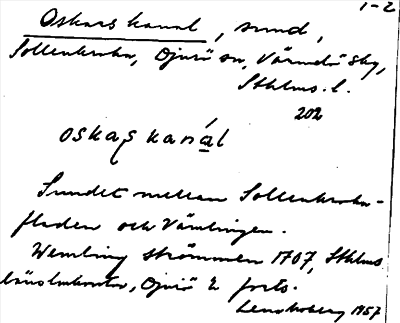 1-2
Oskars kanal, sund,
Sollenkroka, Djurö sn, Värmdö skg,
Sthlms. l.
202
oskaʂ kanál
Sundet mellan Sollenkroka-
fladen och Vämlingen.
Wemling strömmen 1707, Sthlms
länslmkontor, Djurö 2 forts.
1957